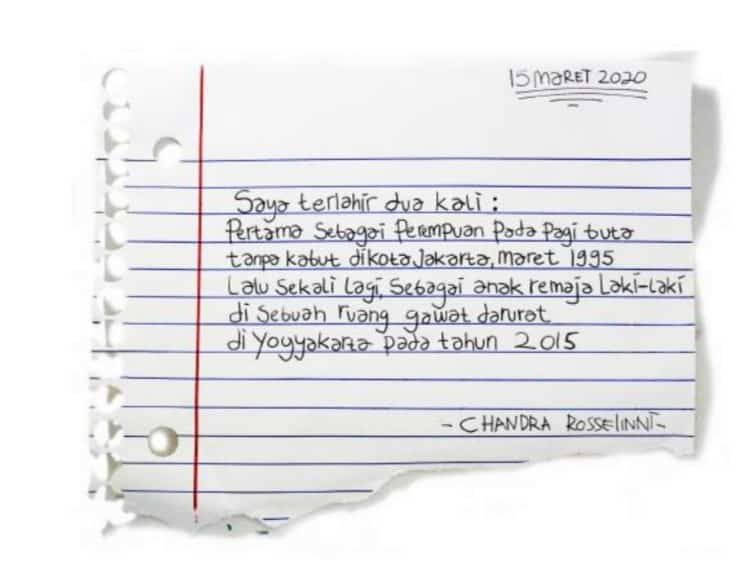 15 MARET 2020
Saya terlahir dua kali :
Pertama Sebagai Perempuan Pada Pagi buta
tanpa kabut dikota Jakarta, Maret 1995
Lalu Sekali Lagi, Sebagai anak remaja Laki-laki
di Sebuah ruang gawat darurat
di Yogyakarta pada tahun 2015
- CHANDRA ROSSELINNI -